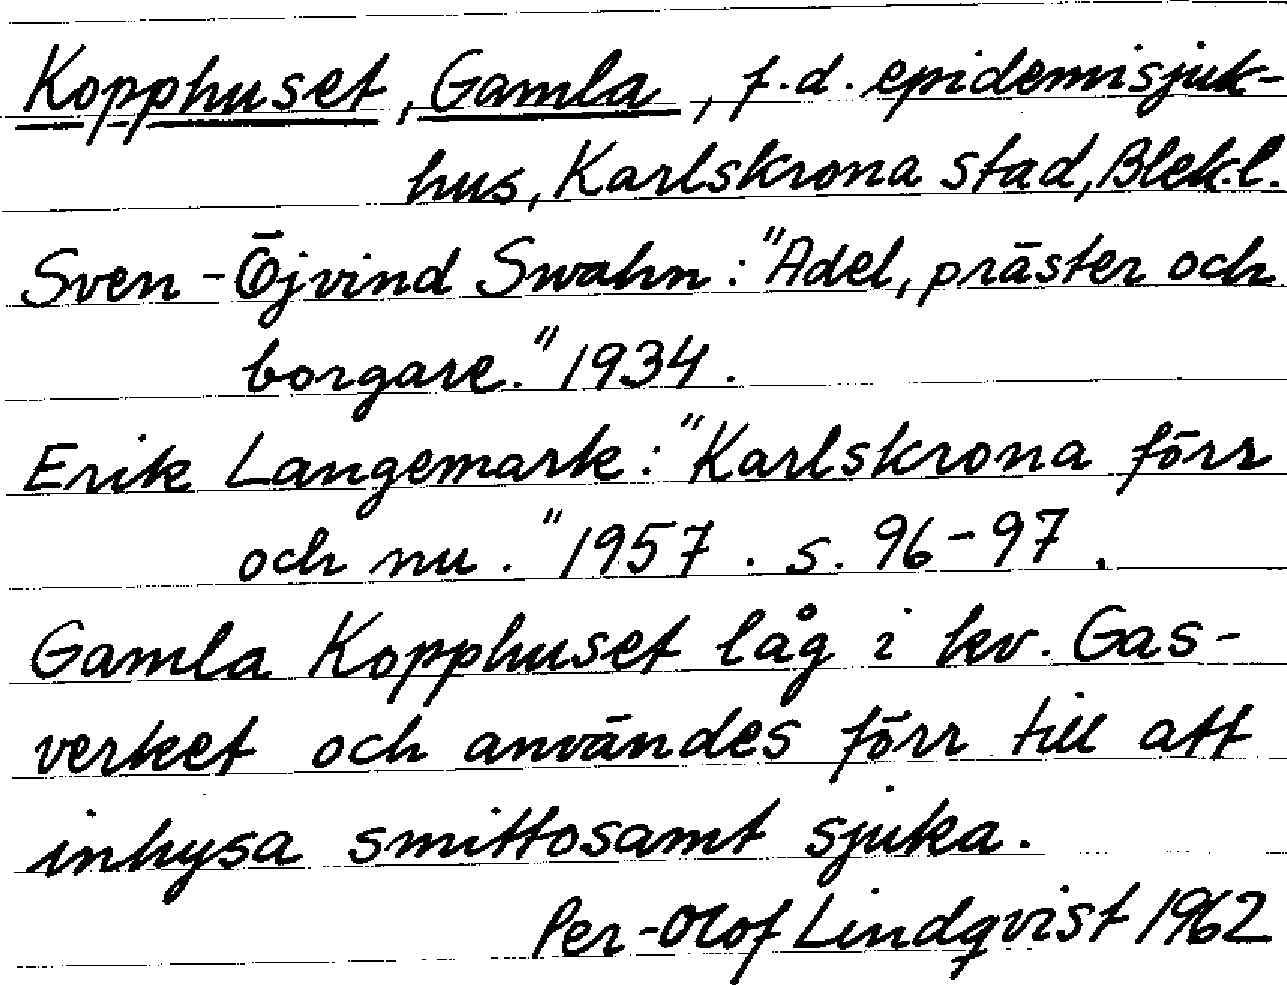 Kopphuset, Gamla, f.d. epidemisjuk-
hus, Karlskrona stad, Blek.l.
Sven-Öjvind Swahn: "Adel, präster och
borgare." 1934.
Erik Langemark: "Karlskrona förr
och nu." 1957. s. 96-97.
Gamla Kopphuset låg i kv. Gas-
verket och användes förr till att
inhysa smittosamt sjuka.
Per-Olof Lindqvist 1962